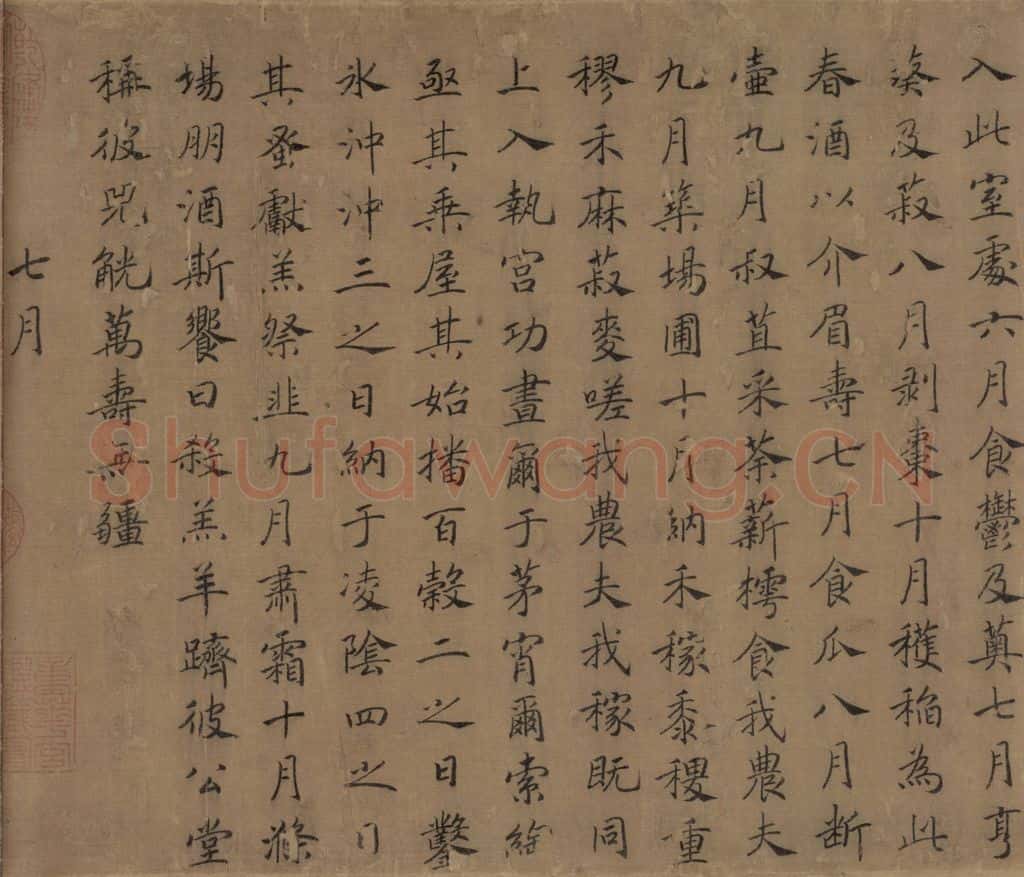 入此室處六月食鬱及薁七月亨
葵及菽八月剥棗十月穫稻為此
春酒以介眉壽七月食瓜八月断
壷九月叔苴采荼薪樗食我農夫
九月築場圃十月納禾稼黍稷重
穋禾麻菽麥嗟我農夫我稼既同
上入執宫功晝爾于茅宵爾索綯
亟其乗屋其始播百穀二之日鑿
氷沖沖三之日納于凌陰四之日
其蚤獻羔祭韭九月肅霜十月滌
場朋酒斯饗曰殺羔羊躋彼公堂
稱彼兕觥萬壽無疆
七月
Shufawang.CN